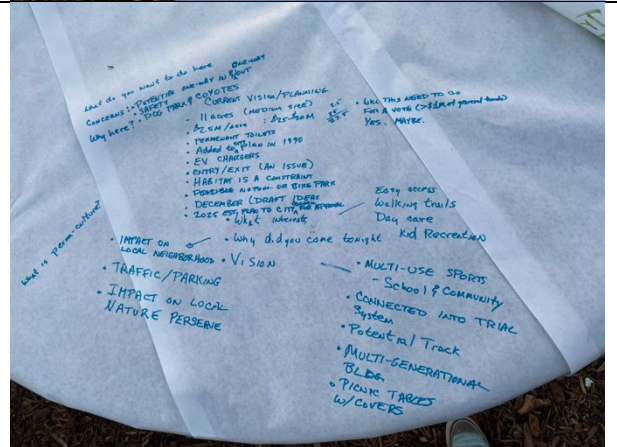 What do you want to do here
ONE-WAY
CONCERNS: • POTENTIAL ONE-WAY IN & OUT
• SAFETY
Why here? • DOG PARK & COYOTES
CURRENT VISION/PLANNING
• 11 acres (MEDIUM SIZE)
• $2.5M/acre : $25-$30M
• PERMENANT TOILETS
• Added to city plan in 1990
• EV CHARGERS
• ENTRY/EXIT (AN ISSUE)
• HABITAT IS A CONSTRAINT
• POSSIBLE NOTION OF BIKE PARK
• DECEMBER (DRAFT IDEAS
• 2025 EST, PLAN TO CITY FOR APPROVAL
• THIS NEED TO GO
FOR A VOTE (>$1M of general funds)
YES. MAYBE.
• What interests
Easy access
Walking trails
Day care
Kid Recreation
• Why did you come tonight
What is perm-culture?
• IMPACT ON
LOCAL NEIGHBORHOOD
• TRAFFIC/PARKING
• IMPACT ON LOCAL
NATURE PERSERVE
• VISION
• MULTI-USE SPORTS
- School & Community
• CONNECTED INTO TRIAL
System
• Potential Track
• MULTI-GENERATIONAL
BLDG
• PICNIC TABLES
W/COVERS